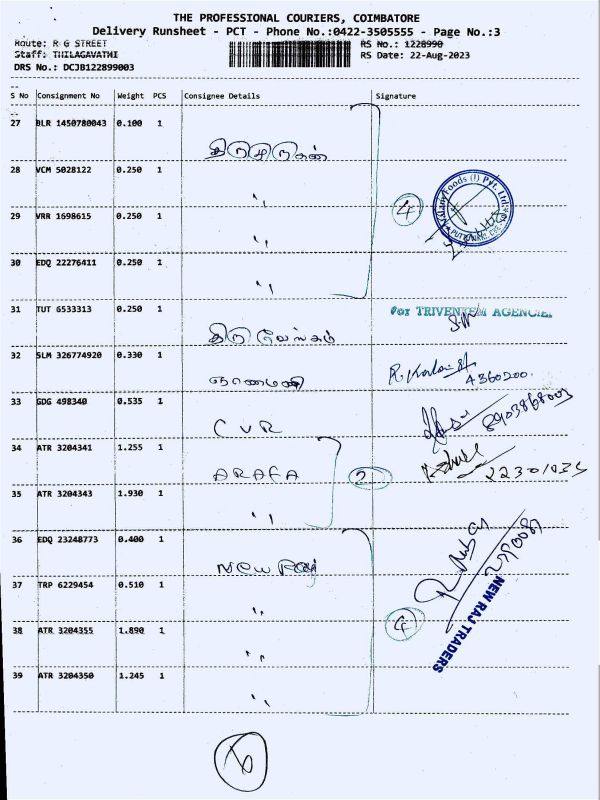 THE PROFESSIONAL COURIERS, COIMBATORE
Delivery Runsheet - PCT - Phone No.:0422-3505555 - Page No.:3
Route: R G STREET RS No.: 1228990
Staff: THILAGAVATHI RS Date: 22-Aug-2023
DRS No.: DCJB122899003
S No Consignment No Weight PCS Consignee Details Signature
27 BLR 1450780043 0.100 1
28 VCM 5028122 0.250 1 "
4
29 VRR 1698615 0.250 1 "
30 EDQ 22276411 0.250 1 "
31 TUT 6533313 0.250 1 திரு வேங்கடம்
For TRIVENTEM AGENCIE
32 SLM 326774920 0.330 1 ஞானமணி
4360200
33 GDG 498340 0.535 1 CVR
8903868003
34 ATR 3204341 1.255 1 ARAFA
2
35 ATR 3204343 1.930 1 "
36 EDQ 23248773 0.400 1 New Raj
37 TRP 6229454 0.510 1 "
4
NEW RAJ TRADERS
38 ATR 3204355 1.890 1 "
39 ATR 3204350 1.245 1 "